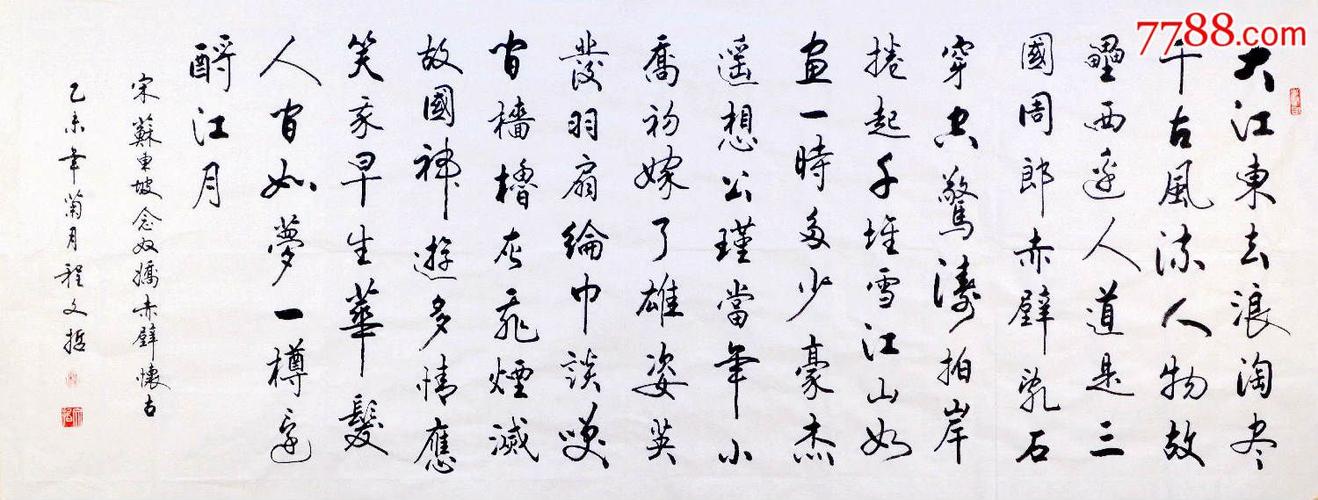 大江東去浪淘尽
千古風流人物故
壘西邊人道是三
國周郎赤壁亂石
穿空驚濤拍岸
捲起千堆雪江山如
畫一時多少豪杰
遥想公瑾當年小
喬初嫁了雄姿英
發羽扇綸巾談笑
間檣櫓灰飛煙滅
故國神遊多情應
笑我早生華髮
人間如夢一樽還
酹江月
宋蘇東坡念奴嬌赤壁懷古
乙未年菊月程文哲
7788.com